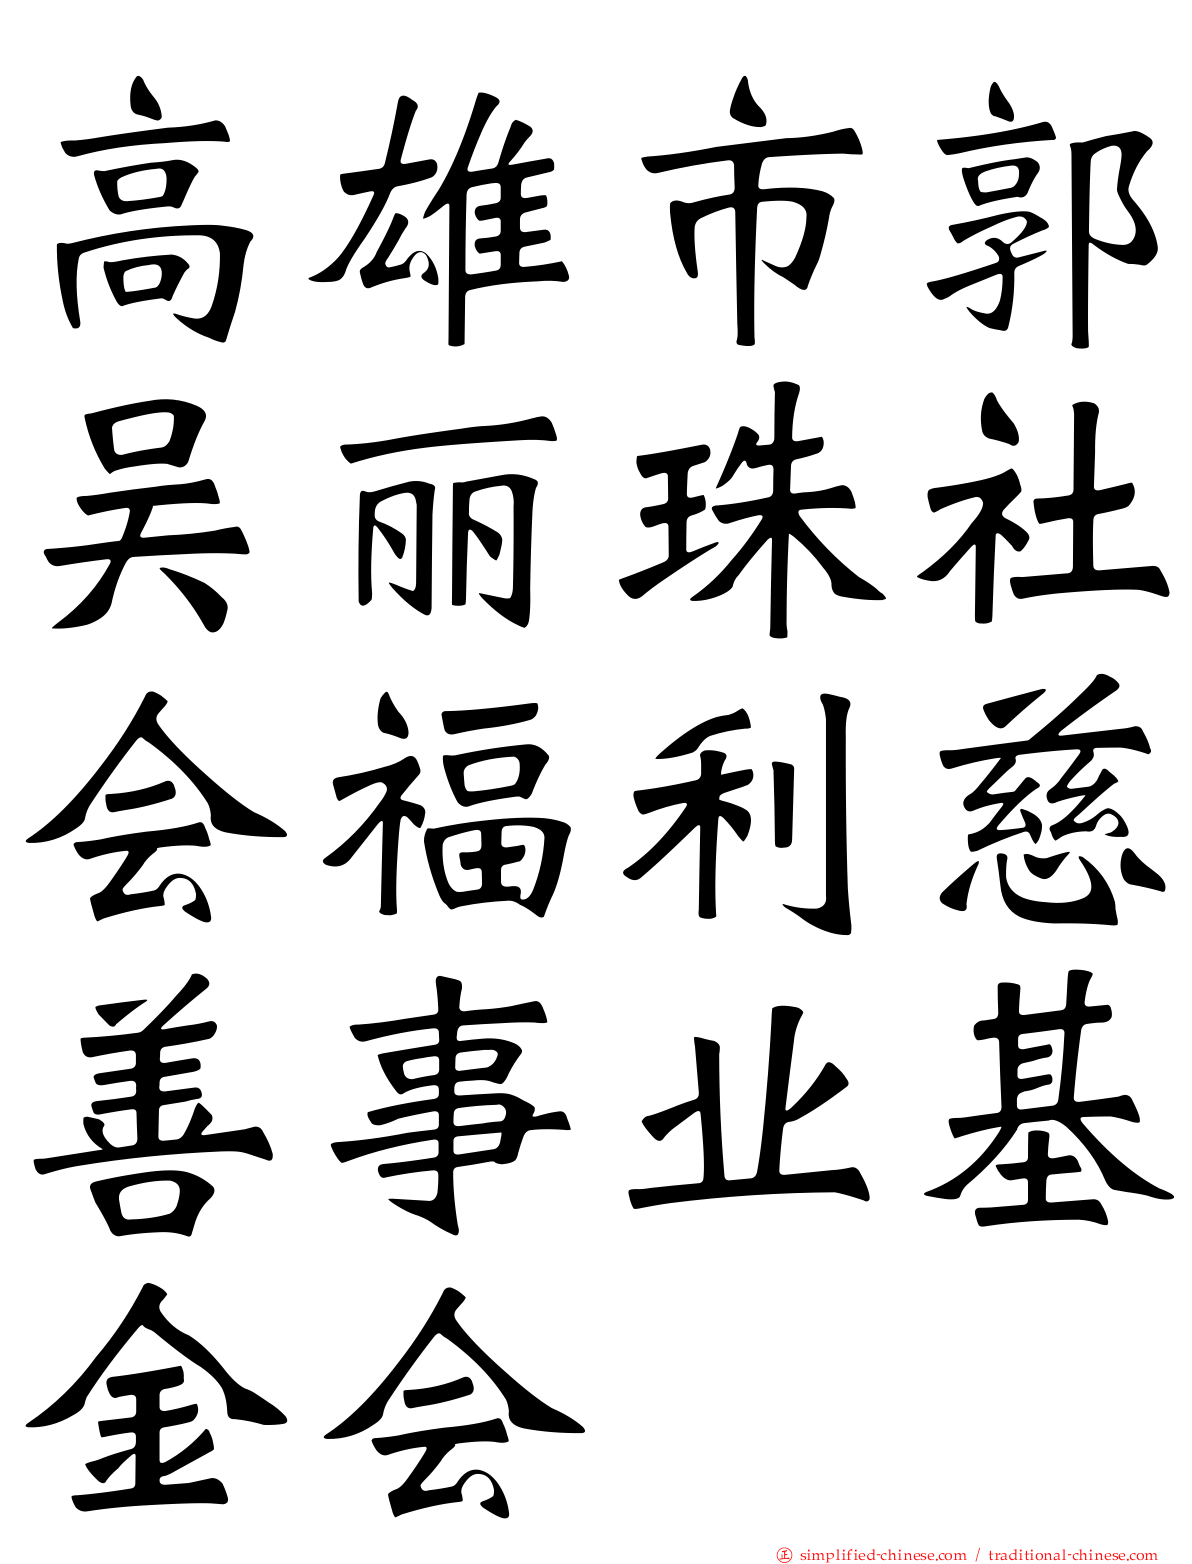 高雄市郭
吴丽珠社
会福利慈
善事业基
金会
正 simplified-chinese.com / traditional-chinese.com